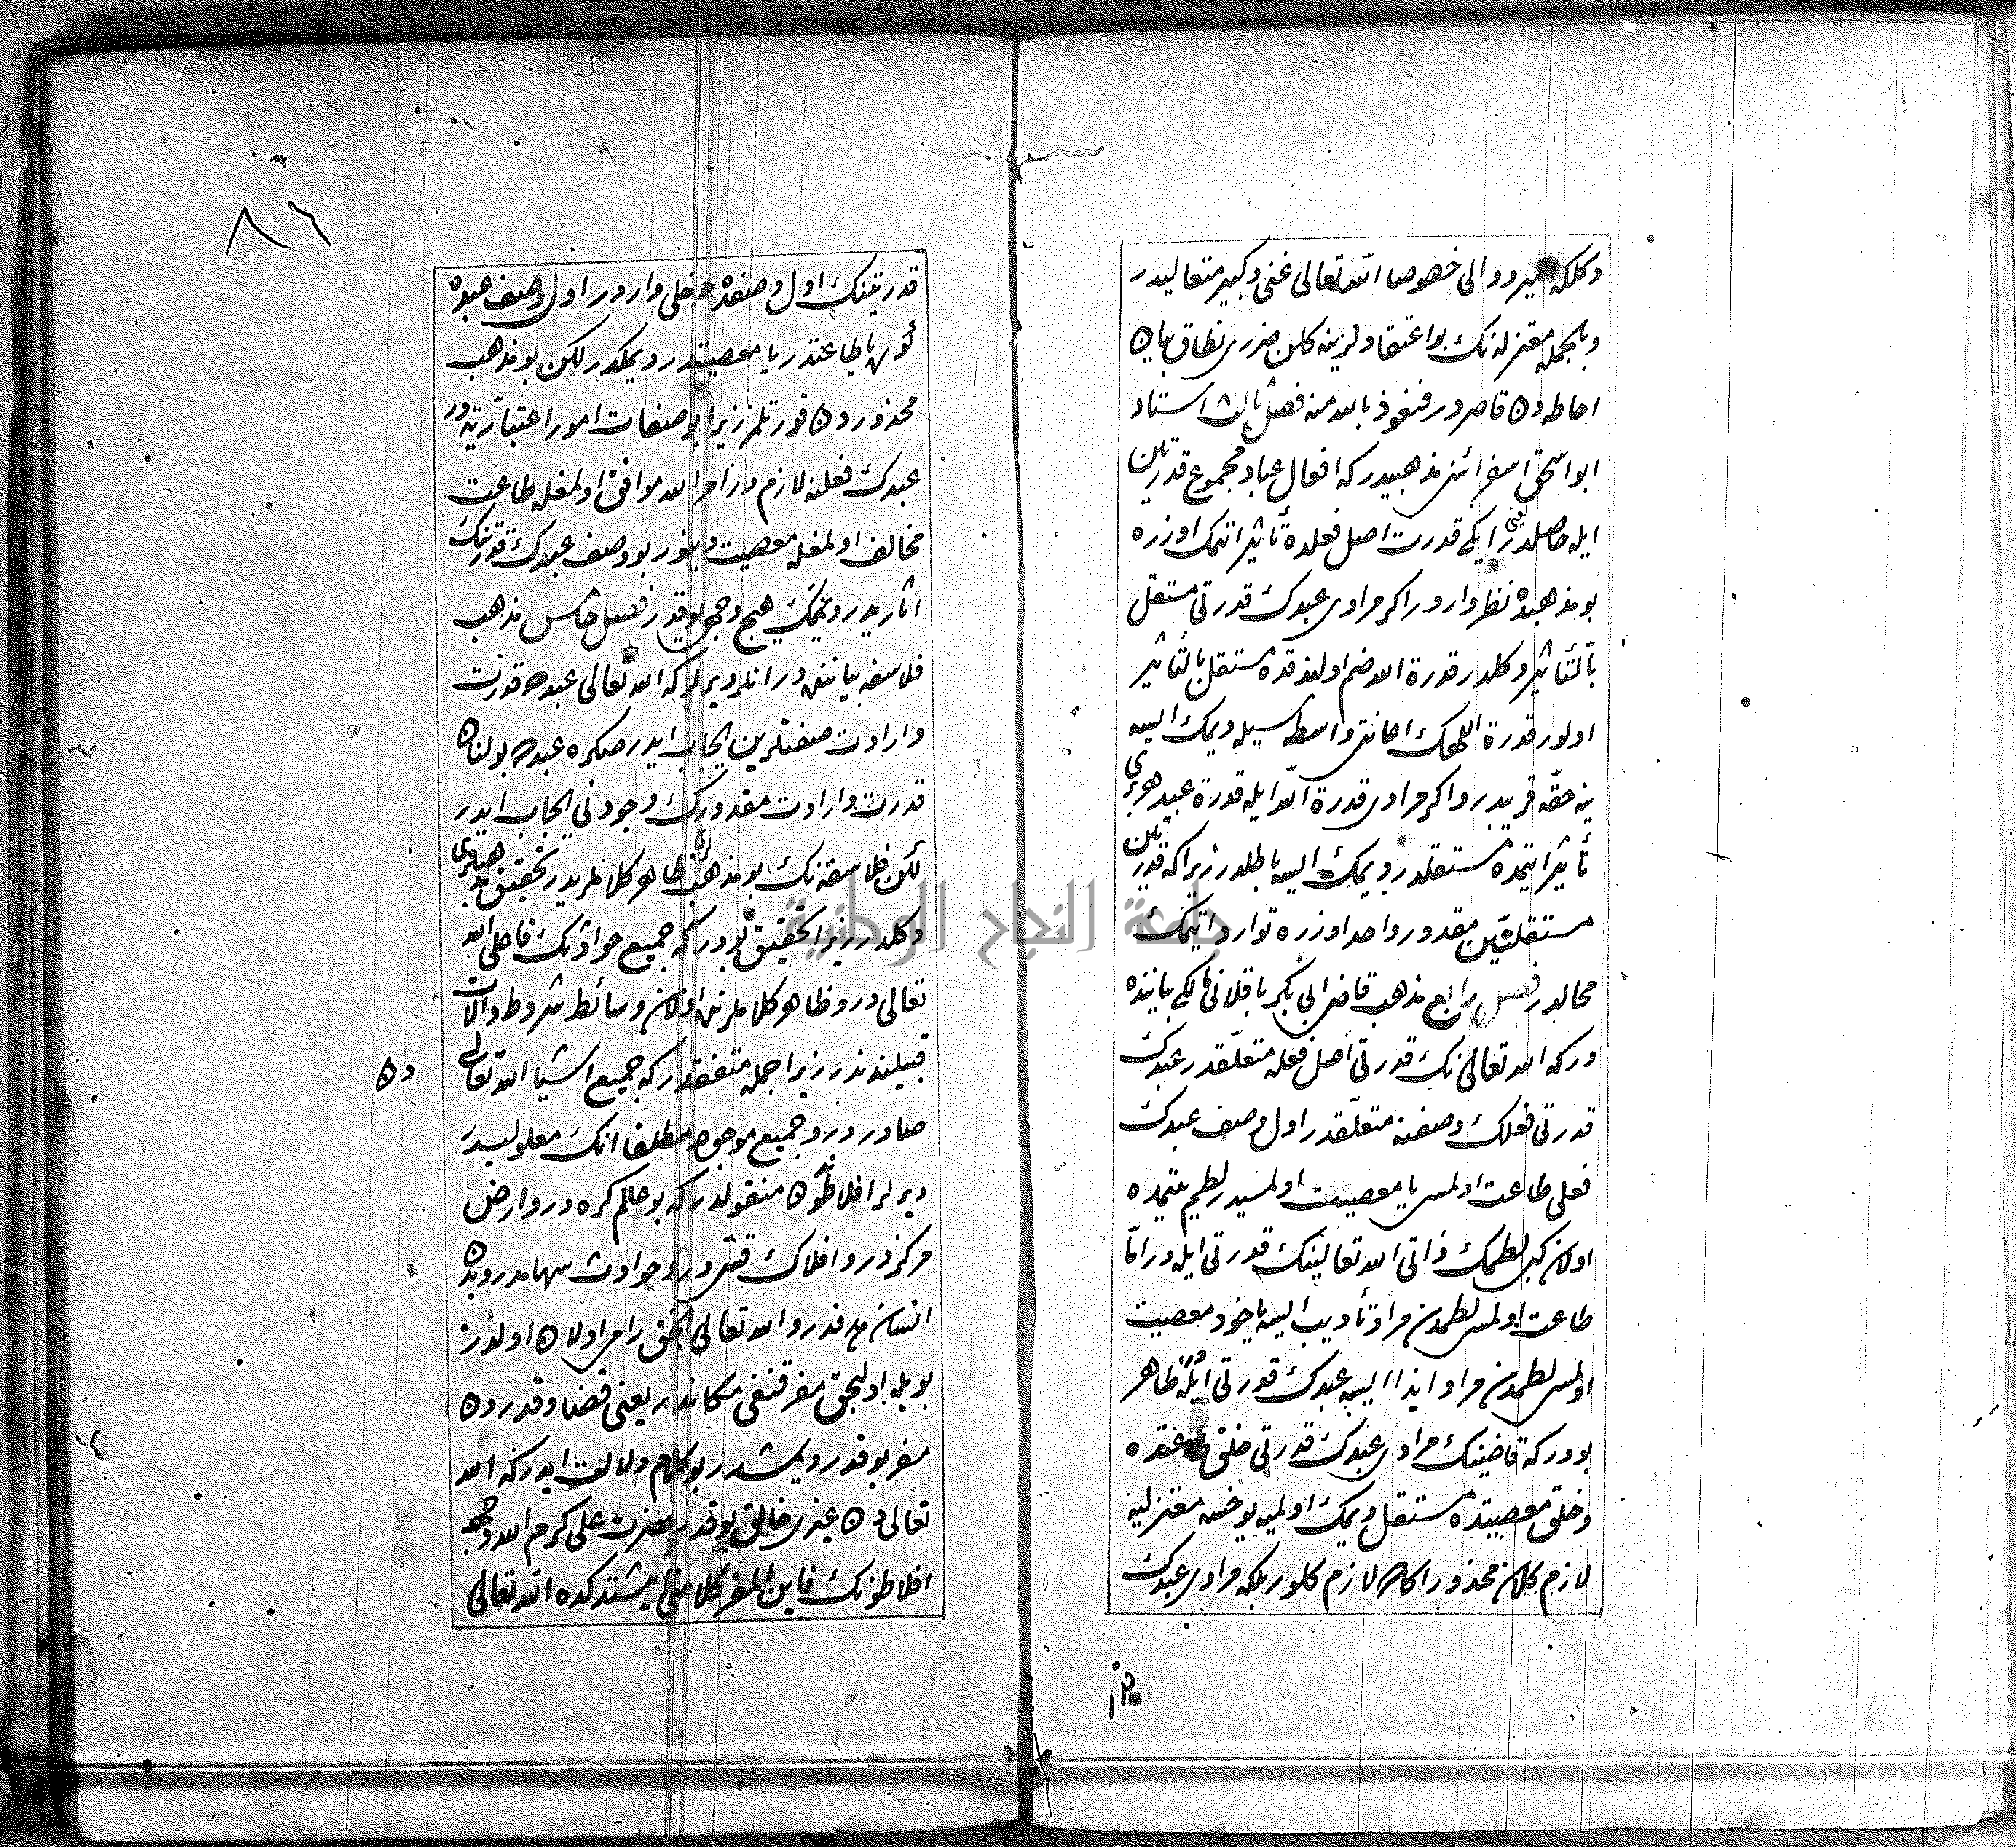 دكلكه ميردوالی خصوصا الله تعالی غنی و كبير متعاليدر
وبالجمله معتزله نك بو اعتقادلرينه كلن ضرری نطاق بيان
احاطه دن قاصردر فنعوذ بالله منه فصل ثالث استاد
ابو اسحق اسفرائنی مذهبيدر كه افعال عباد مجموع قدرتين
ايله حاصلدر يعنی ايكی قدرت اصل فعلده تأثير اتمك اوزره
بو مذهبده نظر واردر اكر مرادی عبدك قدرتی مستقل
بالتأثير دكلدر قدرة الله ضم اولندقده مستقل بالتأثير
اولور قدرة اللهك اعانتی واسطه سيله ديمك ايسه
ينه حقه قريبدر واكر مرادی قدرة الله ايله قدرة عبد هر بری
تأثير ايتمده مستقلدر ديمك ايسه باطلدر زيراكه قدرتين
مستقلتين مقدور واحد اوزره توارد ايتمك
محالدر فصل رابع مذهب قاضی ابی بكر باقلانی مالكی بياننده
در كه الله تعالی نك قدرتی اصل فعله متعلقدر عبدك
قدرتی فعلك وصفنه متعلقدر اول وصف عبدك
فعلی طاعت اولمسی يا معصيت اولمسيدر لطم يتيمده
اولان كبی لطمك ذاتی الله تعالينك قدرتی ايله در اما
طاعت اولمسی لطمدن مراد تأديب ايسه ياخود معصيت
اولمسی لطمدن مراد ايذا ايسه عبدك قدرتی ايله ظاهر
بودر كه قاضينك مرادی عبدك قدرتی خلق طاعتده
وخلق معصيتده مستقل ديمك اولميه يوخسه معتزليه
لازم كلان محذور اكا ده لازم كلور بلكه مرادی عبدك
٨٦
قدرتينك اول وصفده دخلی واردر اول وصف عبده
كون يا طاعتدر يا معصيتدر ديمكدر لكن بو مذهب
محذوردن قورتلمز زيرا بو صفات امور اعتباريه در
عبدك فعلنه لازمدر امر الله موافق اولمغله طاعت
مخالف اولمغله معصيت دينور بو وصف عبدك قدرتنك
اثاريدر ديمك هيچ وجهی يوقدر فصل خامس مذهب
فلاسفه بياننده در انلر ديرلر كه الله تعالی عبده قدرت
وارادت صفتلرين ايجاب ايدر صكره عبده بولنان
قدرت وارادت مقدورك وجودنی ايجاب ايدر
لكن فلاسفه نك بو مذهب ظاهر كلاملريدر تحقيق مذهبلری
دكلدر زيرا تحقيق بودر كه جميع حوادثك فاعلی الله
تعالی در وظاهر كلاملرنده اولان وسائط شروط والات
قبيلندندر زيرا جمله متفقدر كه جميع اشيا الله تعالی
دن
صادردر وجميع موجود مطلقا انك معلوليدر
ديرلر افلاطوندن منقولدر كه بو عالم كره در وارض
مركزدر وافلاك قسی در وحوادث سهامدر وبدن
انسان هدفدر والله تعالی الحق رامی اولان اولدر
بويله اوليجق مفر قنغی مكاندر يعنی قضا وقدردن
مفر يوقدر ديمشدر بو كلام دلالت ايدر كه الله
تعالی دن غيری خالق يوقدر حضرت علی كرم الله وجهه
افلاطونك فاين المفر كلامنی ايشتدكده الله تعالی